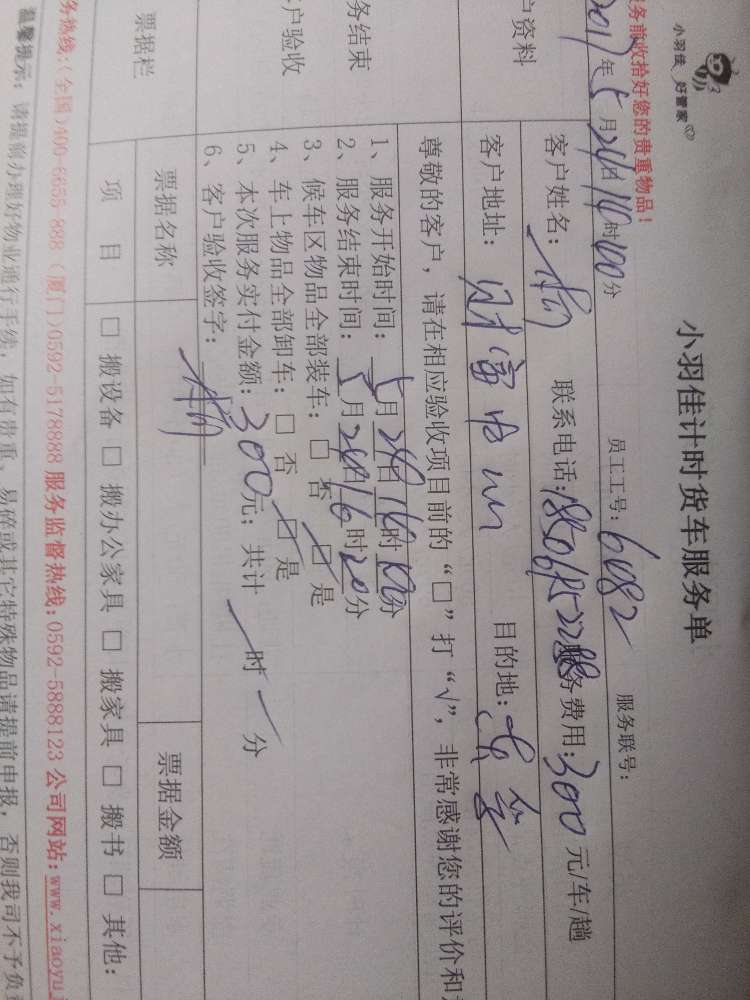 小羽佳 好管家
小羽佳计时货车服务单
务前收拾好您的贵重物品!
2017年5月24日14时00分 员工工号:6082 服务联号:
户资料
客户姓名: 联系电话: 服务费用:300元/车/趟
客户地址:财富中心 目的地:
尊敬的客户,请在相应验收项目前的“□”打“√”,非常感谢您的评价和
务结束
户验收
1、服务开始时间:5月24日14时10分
2、服务结束时间:5月24日16时20分
3、候车区物品全部装车:□ 否 □ 是
4、车上物品全部卸车:□ 否 □ 是
5、本次服务实付金额:300元;共计 时 分
6、客户验收签字:
票据栏
票据名称 票据金额
项 目 □ 搬设备 □ 搬办公家具 □ 搬家具 □ 搬书 □ 其他:
务热线:(全国)400-6655-888 (厦门)0592-5178888 服务监督热线:0592-5888123 公司网站:www.xiaoyuj
温馨提示:请提前办理好物业通行手续,如有贵重、易碎或其它特殊物品请提前申报,否则我司不予负